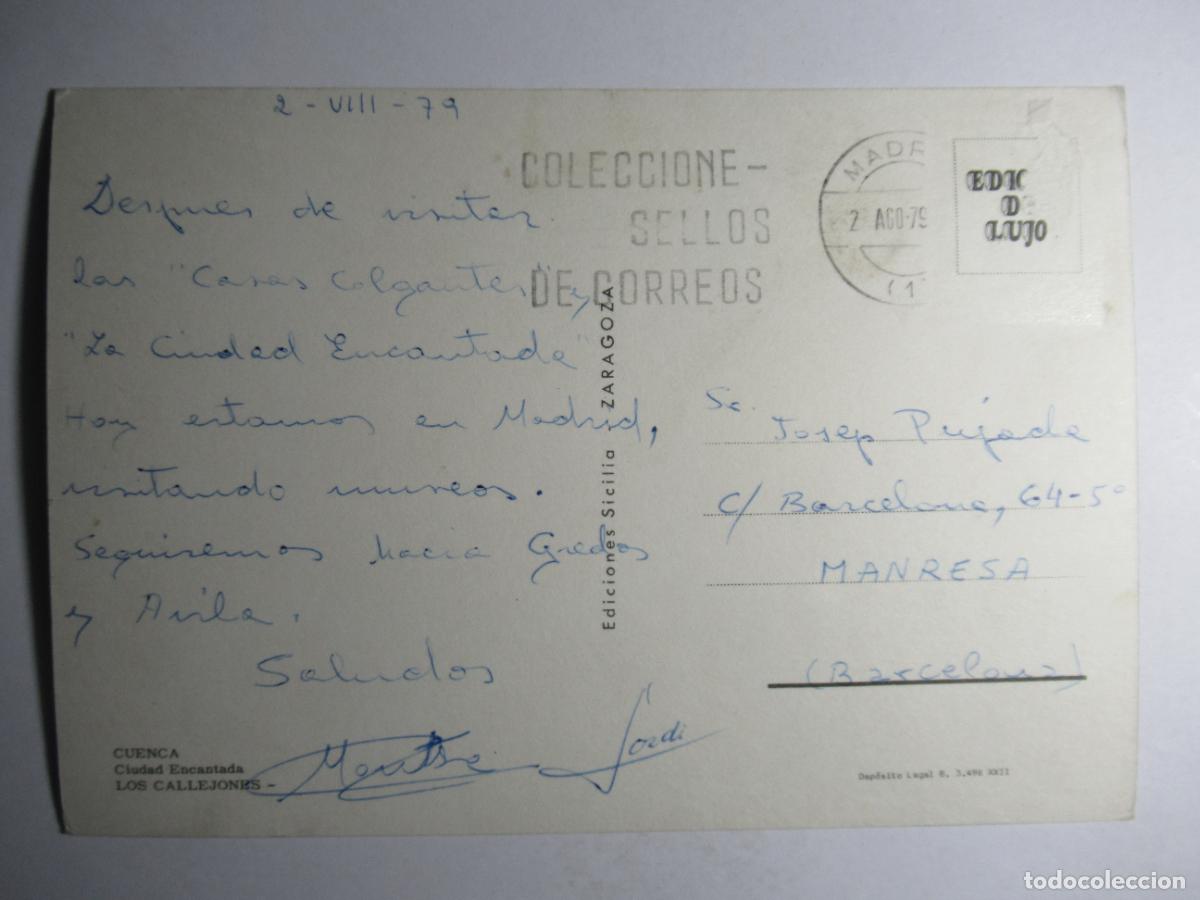 2 - VIII - 79
Despues de visitar
las "Casas Colgantes" y
"La Ciudad Encantada"
Hoy estamos en Madrid,
visitando museos.
Seguiremos hacia Gredos
y Avila.
Saludos
Montse Jordi
CUENCA
Ciudad Encantada
LOS CALLEJONES -
COLECCIONE -
SELLOS
DE CORREOS
MADR
2 AGO 79
(1
EDIC
D
LUJO
Ediciones Sicilia ZARAGOZA
Sr.
Josep Pujada
C/ Barcelona, 64-5º
MANRESA
(Barcelona)
Depósito Legal B. 3.498 XXII
todocoleccion